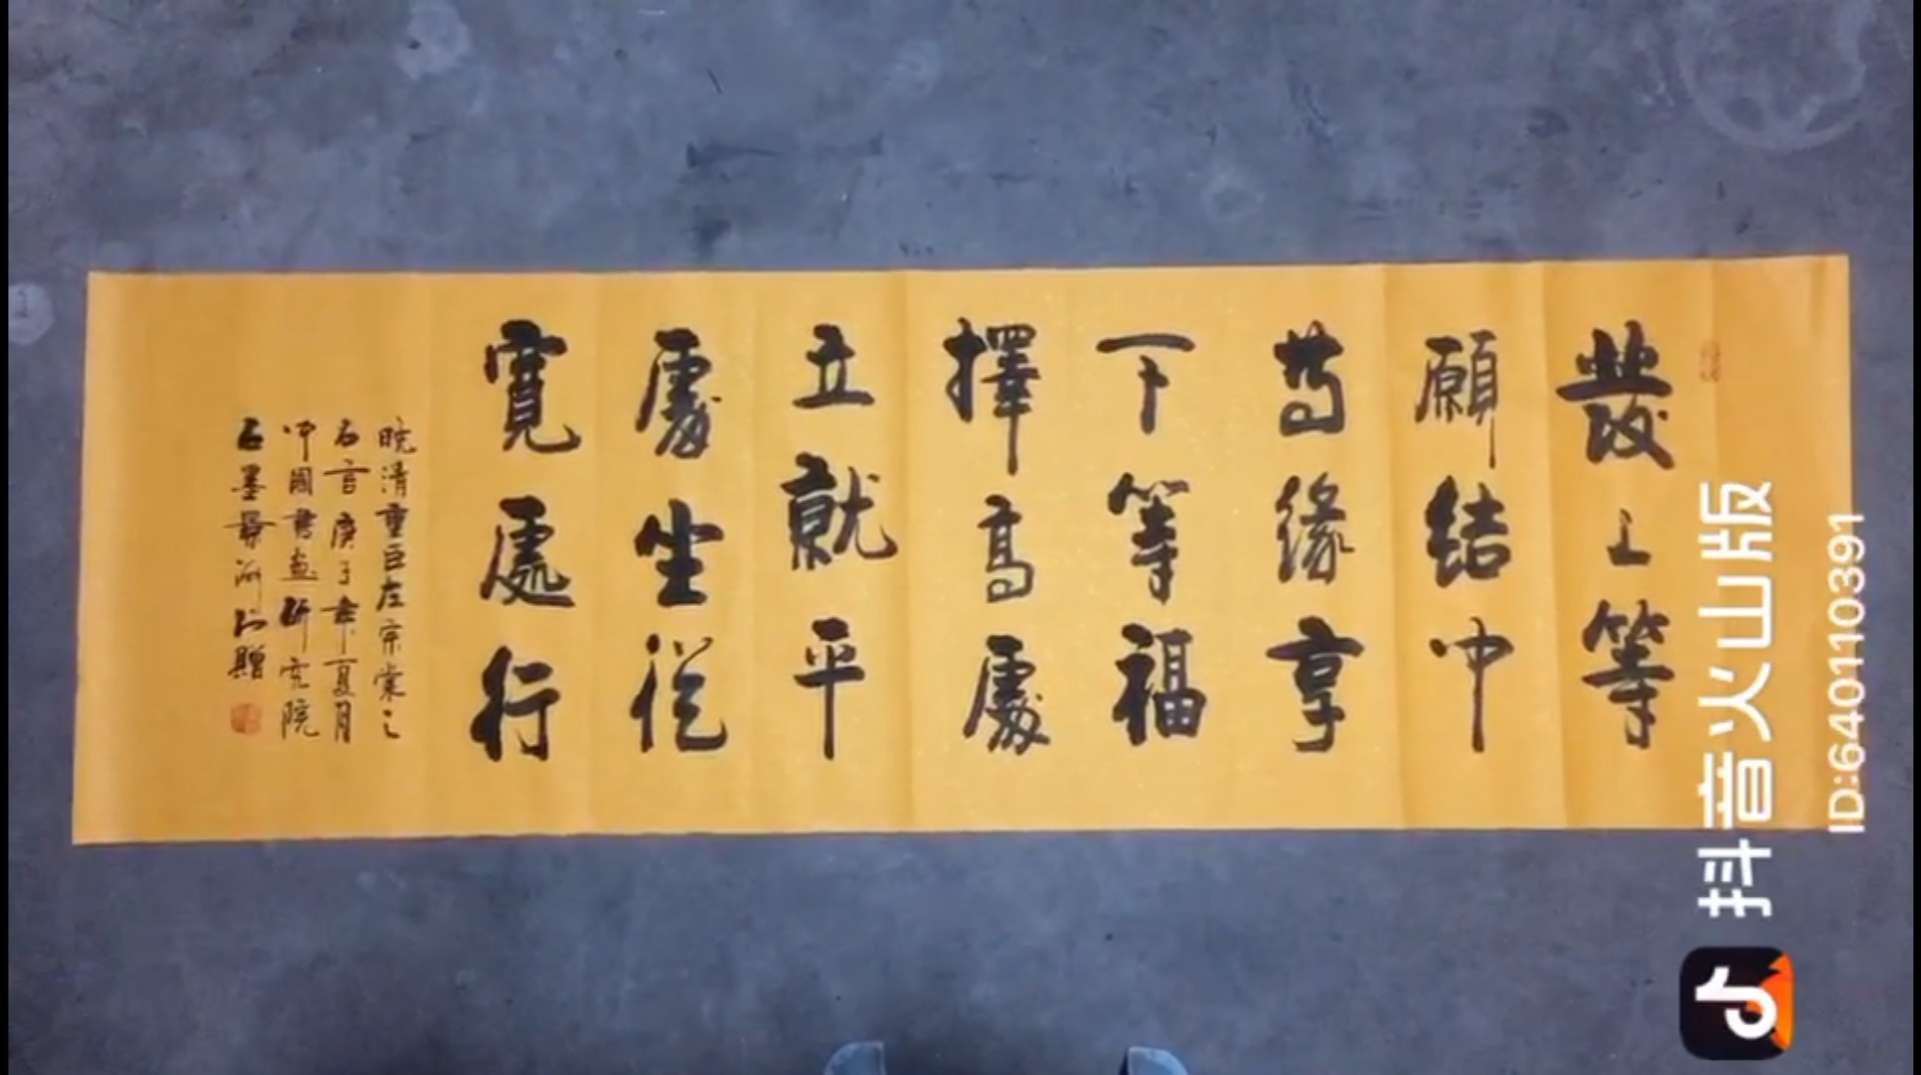 發上等
願結中
等緣享
下等福
擇高處
立就平
處坐從
寬處行
晚清重臣左宗棠之
名言庚子年夏月
中國書画研究院
石墨贈
抖音火山版
ID:640110391